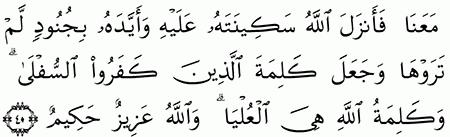 مَعَنَا فَأَنزَلَ ٱللَّهُ سَكِينَتَهُۥ عَلَيْهِ وَأَيَّدَهُۥ بِجُنُودٍ لَّمْ
تَرَوْهَا وَجَعَلَ كَلِمَةَ ٱلَّذِينَ كَفَرُوا۟ ٱلسُّفْلَىٰ ۗ
وَكَلِمَةُ ٱللَّهِ هِىَ ٱلْعُلْيَا ۗ وَٱللَّهُ عَزِيزٌ حَكِيمٌ ﴿٤٠﴾